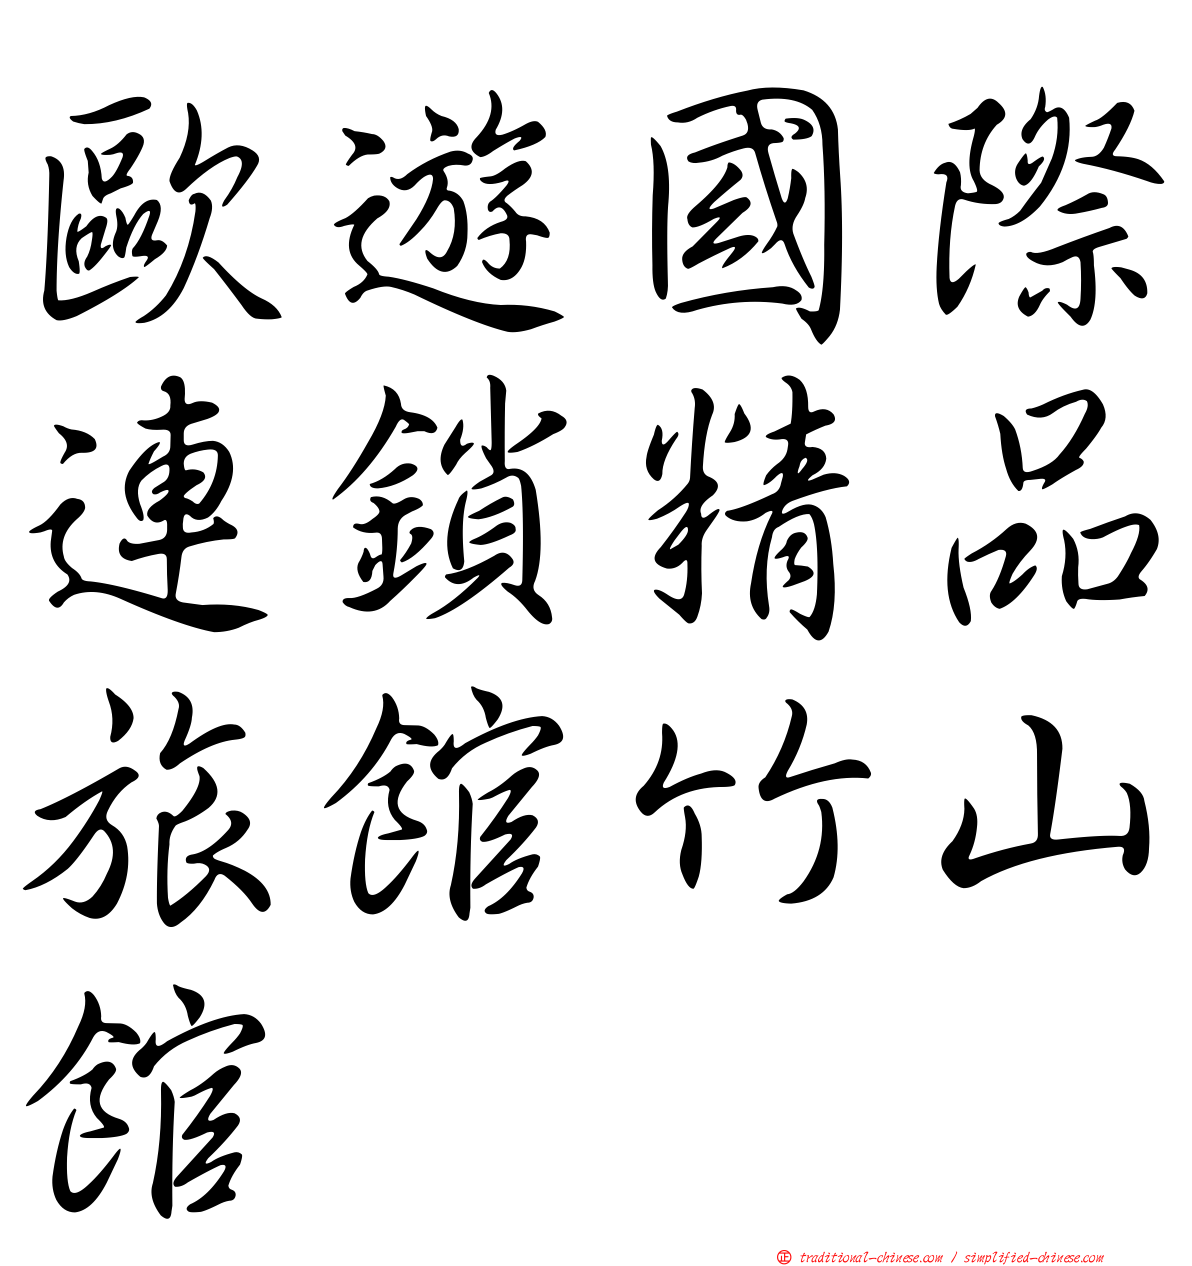 歐遊國際
連鎖精品
旅館竹山
館
正 traditional-chinese.com / simplified-chinese.com